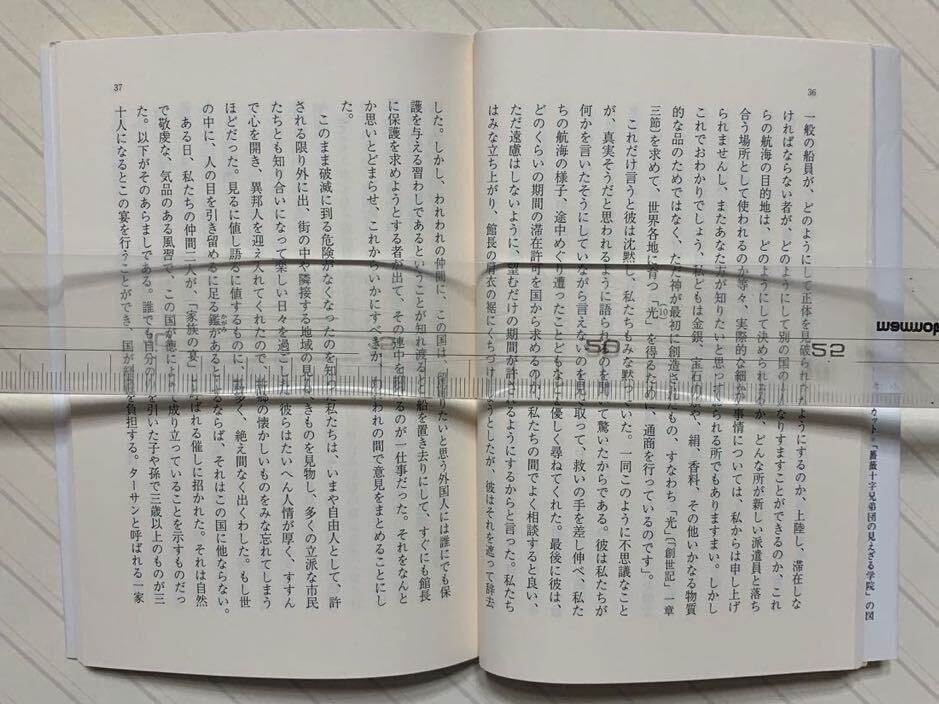 36
一般の船員が、どのようにして正体を見破られようにするのか、上陸し、滞在しな
ければならない者が、どのようにして別の国のなりすますことができるのか、これ
らの航海の目的地は、どのようにして決められか、どんな所が新しい派遣員と落ち
合う場所として使われるのか等々、実際的な細か事情については、私からは申し上げ
られませんし、またあなた方が知りたいと思っられる所でもありますまい。しかし
これでおわかりでしょう、私どもは金銀、宝石のや、絹、香料、その他いかなる物質
的な品のためではなく、ただ神が最初に創造されたもの、すなわち「光」(『創世記』一章
三節)を求めて、世界各地に育つ「光」(10)を得るために、通商を行っているのです」。
これだけ言うと彼は沈黙し、私たちもみな黙っていた。一同このように不思議なこと
が、真実そうだと思われるように語られるのを聞いて驚いたからである。彼は私たちが
何かを言いたそうにしていながら言えないのを見て取って、救いの手を差し伸べ、私た
ちの航海の様子、途中めぐり遭ったことどもなど優しく尋ねてくれた。最後に彼は、
どのくらいの期間の滞在許可を国から求めるのか、私たちの間でよく相談すると良い、
ただ遠慮はしないように、望むだけの期間が許されるようにするからと言った。私たち
はみな立ち上がり、館長の肩衣の裾に口づけしようとしたが、彼はそれを遮って辞去
37
した。しかし、われわれの仲間に、この国は、りたいと思う外国人には誰にでも保
護を与える習わしであるということが知れ渡ると、船を置き去りにして、すぐにも館長
に保護を求めようとする者が出て、その連中をるのが一仕事だった。それをなんと
か思いとどまらせ、これからいかにすべきか、われわれの間で意見をまとめることにし
た。
このまま破滅に到る危険がなくなったのを知った私たちは、いまや自由人として、許
される限り外に出、街の中や隣接する地域の見るべきものを見物し、多くの立派な市民
たちとも知り合いになって楽しい日々を過ごした。彼らはたいへん人情が厚く、すすん
で心を開き、異邦人を迎え入れてくれたので、故郷の懐かしいものをみな忘れてしまう
ほどだった。見るに値し語るに値するものに、数多く、絶え間なく出くわした。もし世
の中に、人の目を引き留めるに足る鑑があるとするならば、それはこの国に他ならない。
ある日、私たちの仲間二人が、「家族の宴」と呼ばれる催しに招かれた。それは自然
で敬虔な、気品のある風習で、この国が徳によって成り立っていることを示すものだっ
た。以下がそのあらましである。誰でも自分のを引いた子や孫で三歳以上のものが三
十人になるとこの宴を行うことができ、国が経費を負担する。ターサンと呼ばれる一家
カット=「薔薇十字兄弟団の見えざる学院」の図
50
52
mammoth